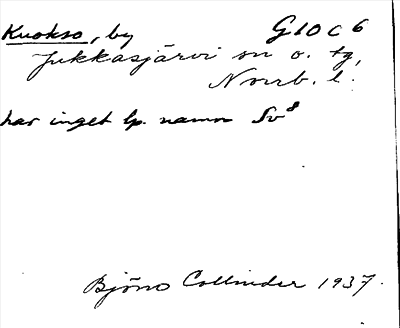 Kuokso, by G10 c 6
Jukkasjärvi sn o. tg,
Norrb. l.
har inget lp. namn Sv8
Björn Collinder 1937.